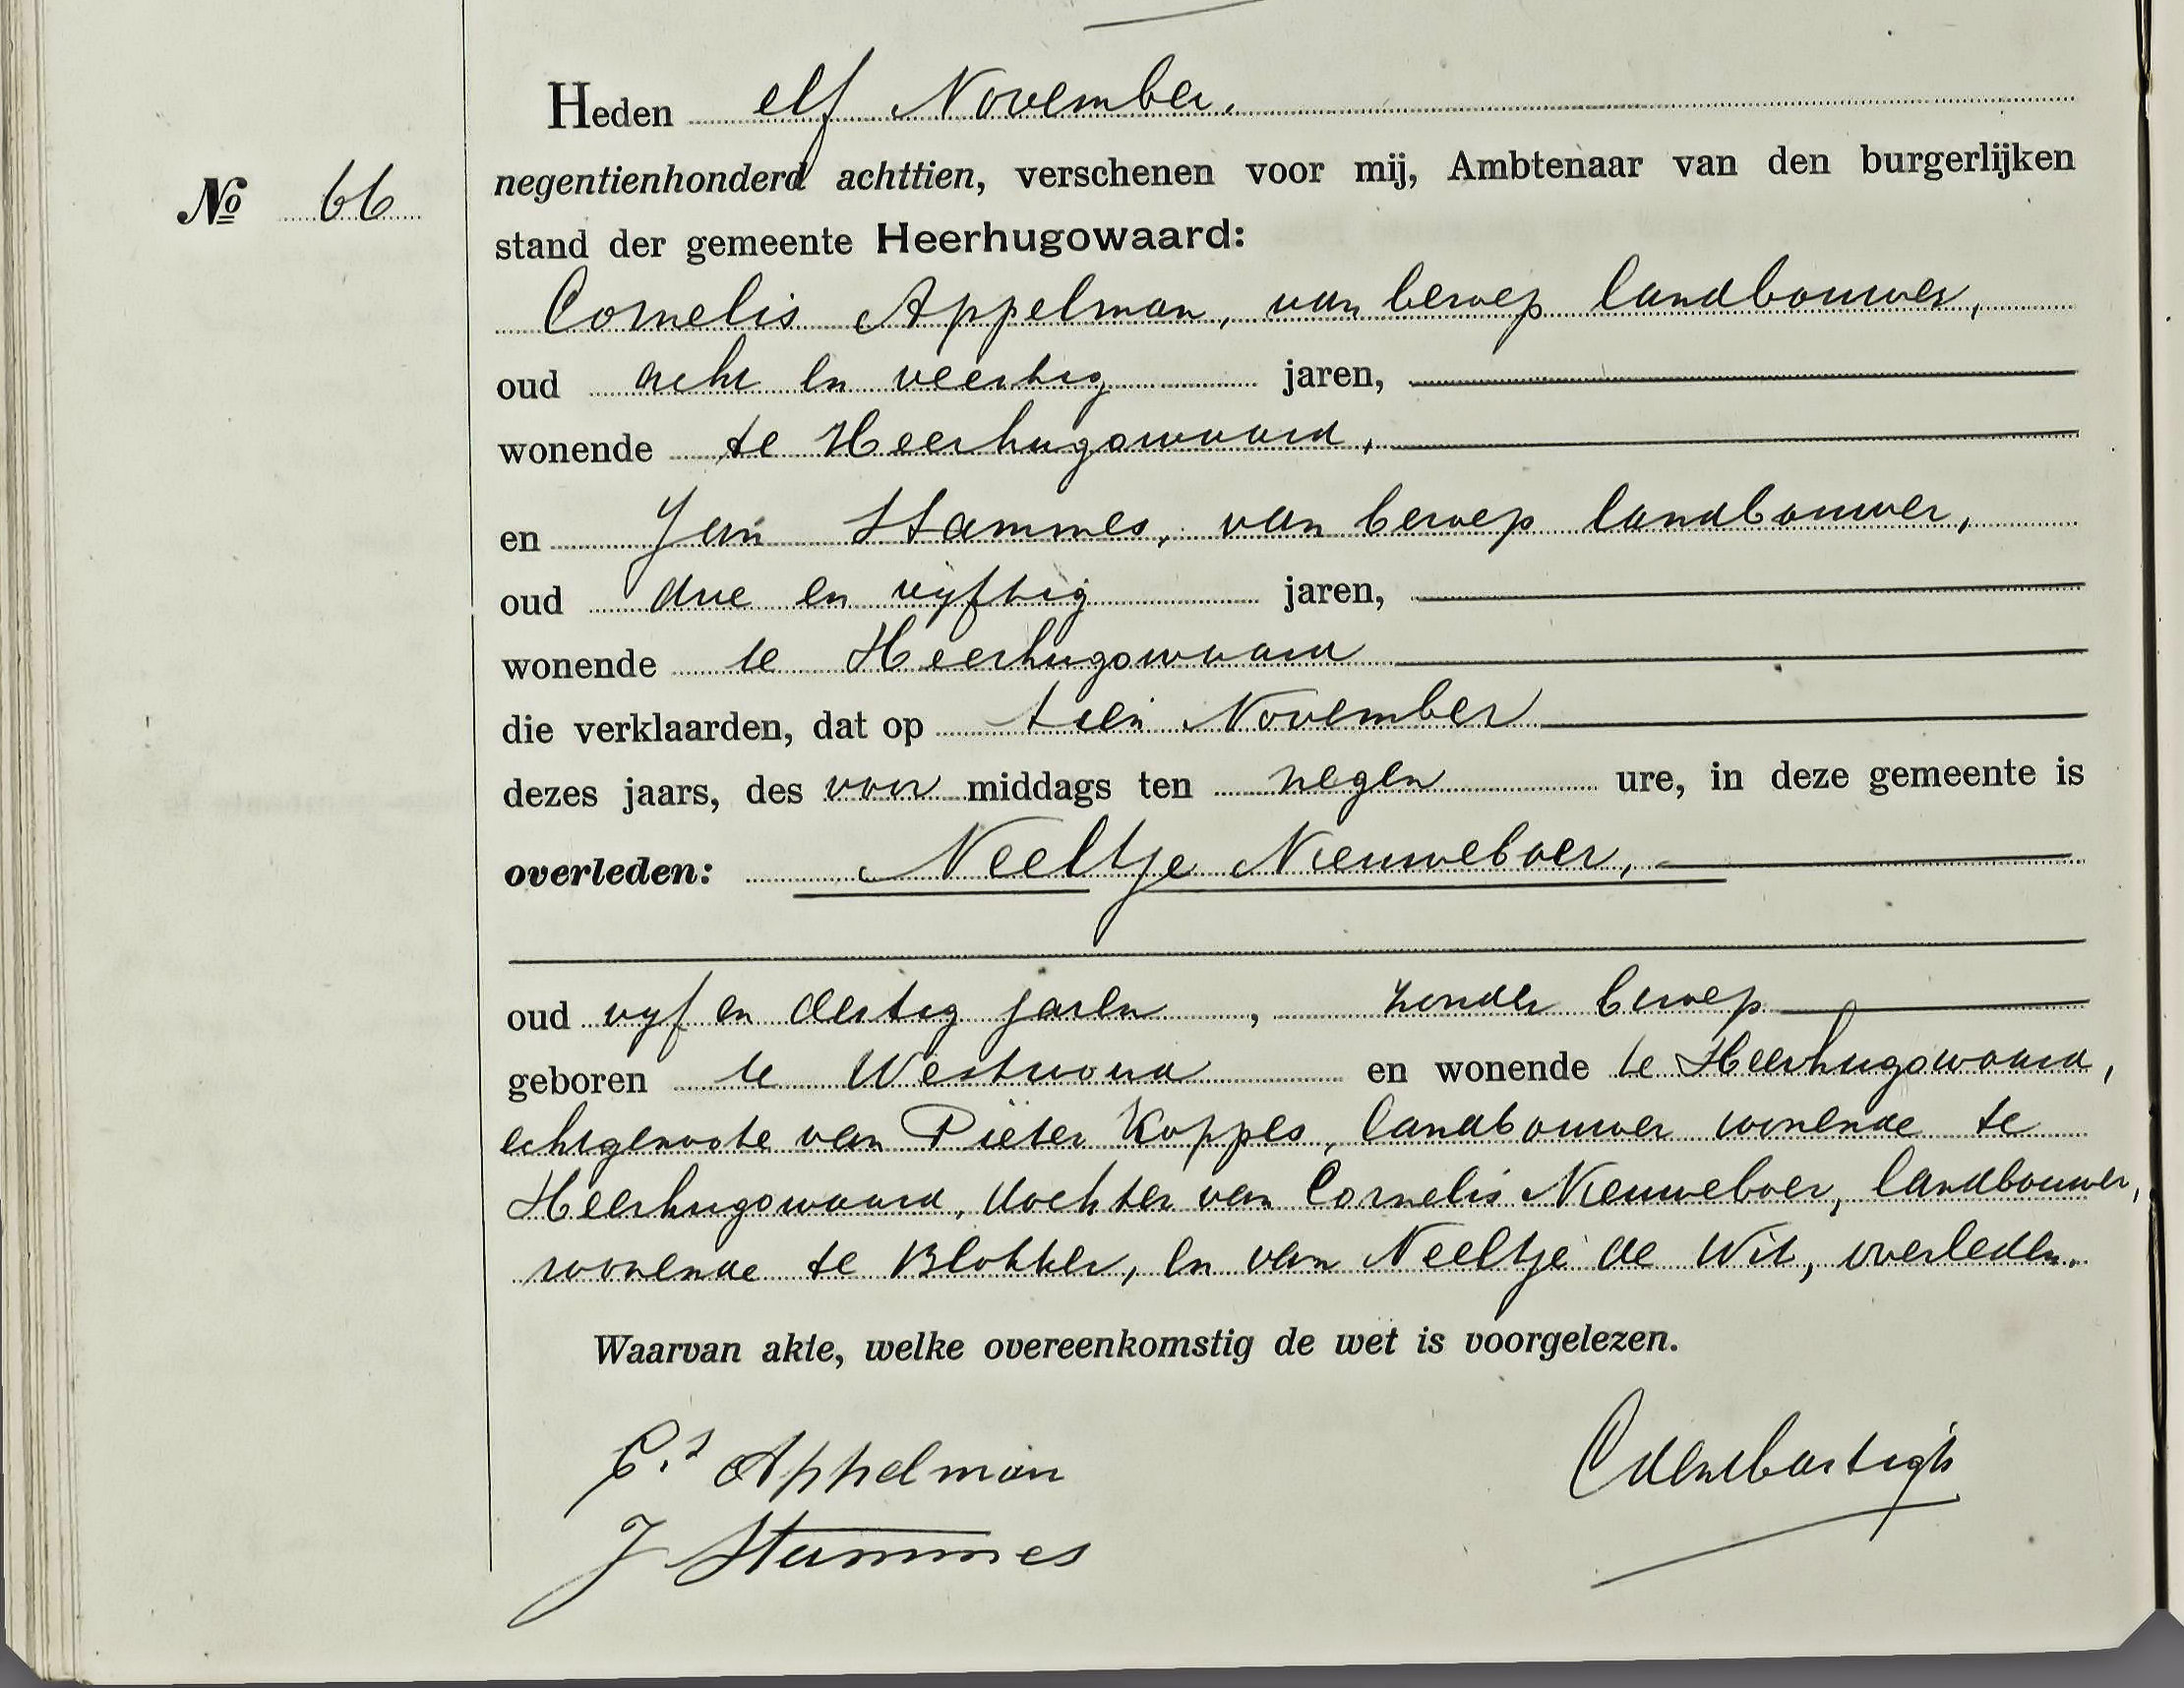 Heden elf November.
negentienhonderd achttien, verschenen voor mij, Ambtenaar van den burgerlijken
No 66
stand der gemeente Heerhugowaard:
Cornelis Appelman, van beroep landbouwer,
oud acht en veertig jaren,
wonende te Heerhugowaard,
en Jan Stammes, van beroep landbouwer,
oud drie en vijftig jaren,
wonende te Heerhugowaard
die verklaarden, dat op tien November
dezes jaars, des voor middags ten negen ure, in deze gemeente is
overleden: Neeltje Nieuweboer,
oud vijf en dertig jaren, zonder beroep
geboren te Westwoud en wonende te Heerhugowaard,
echtgenoote van Pieter Koppes, landbouwer wonende te
Heerhugowaard, dochter van Cornelis Nieuweboer, landbouwer,
wonende te Blokker, en van Neeltje de Wit, overleden.
Waarvan akte, welke overeenkomstig de wet is voorgelezen.
Cs Appelman
J Stammes